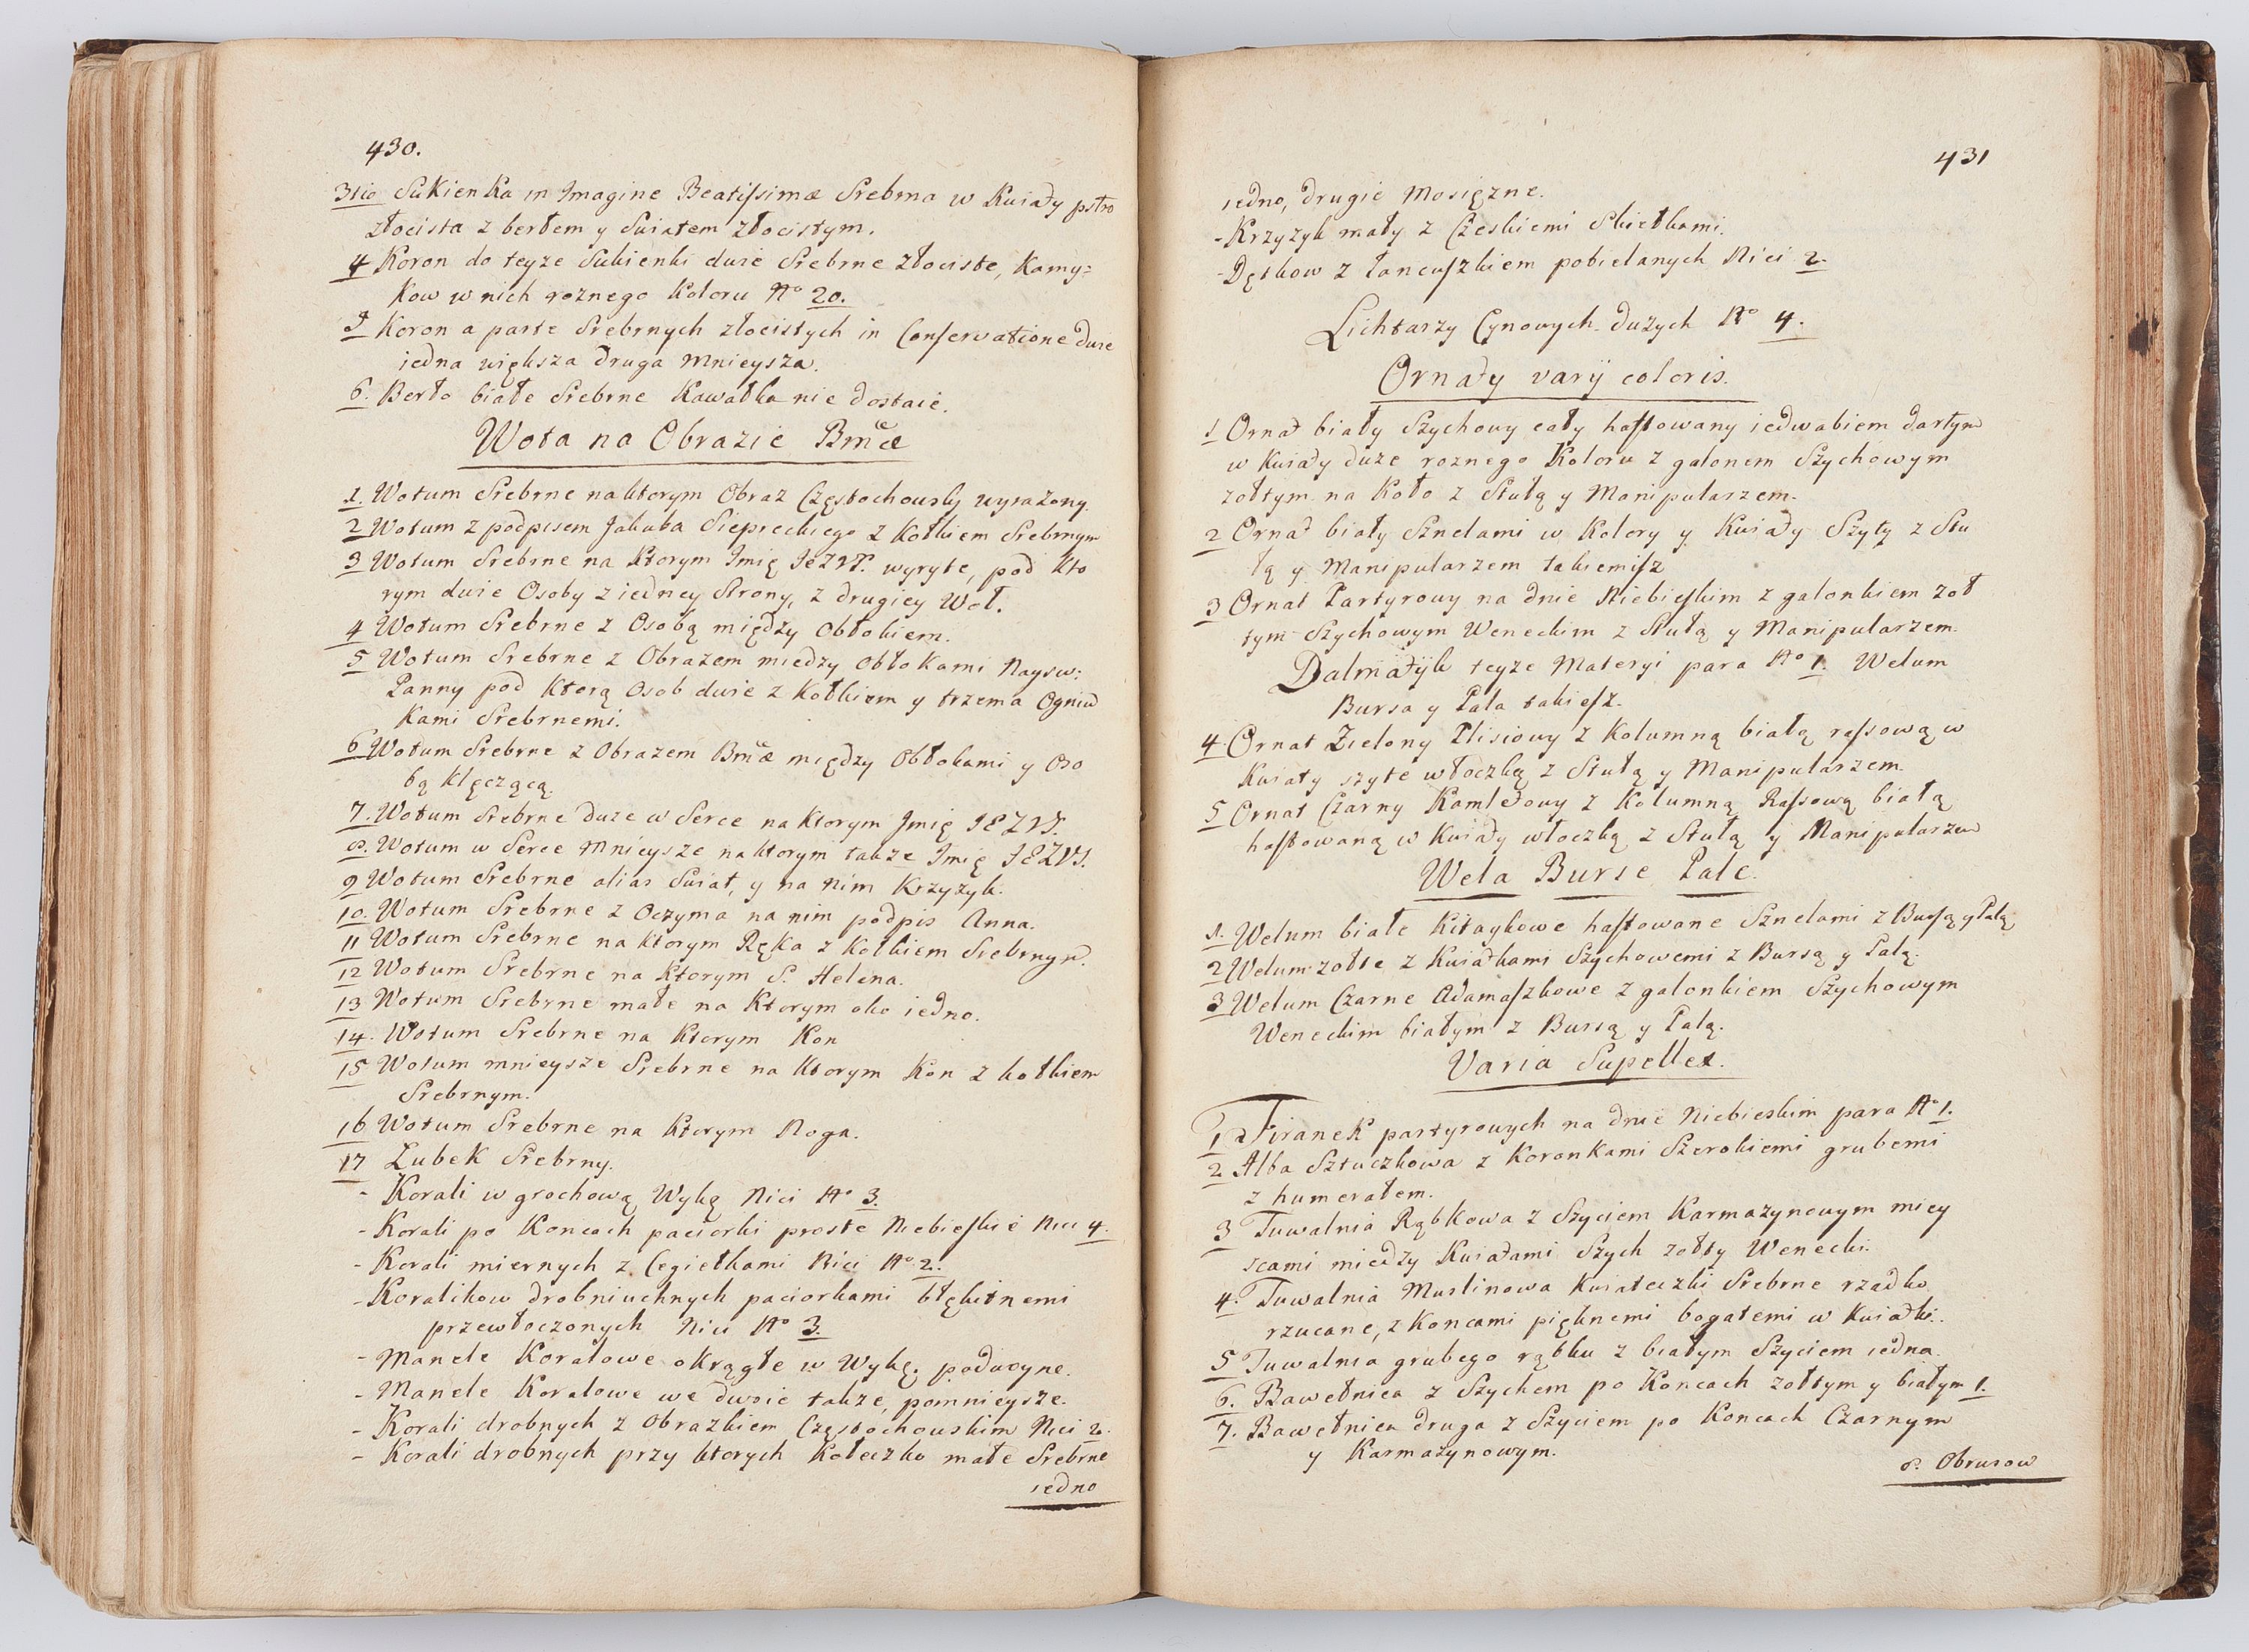 430.
3tio Sukienka in Imagine Beatiſsimæ Srebrna w Kwiaty pstro
złocista z berłem y Swiatem złocistym.
4 Koron do teyze Sukienki dwie Srebrne złociste, Kamy=
kow w nich roznego Koloru No 20.
5 Koron a parte Srebrnych złocistych in Conservatione dwie
iedna większa druga mnieysza.
6. Berło białe Srebrne Kawałka nie dostaie.
Wota na Obrazie Bmæ
1. Wotum Srebrne na ktorym Obraz Częstochowsky wyrażony.
2 Wotum z podpisem Jakuba Siepreckiego z Kołkiem Srebrnym
3 Wotum Srebrne na Ktorym Imię IEZVS. wyryte, pod Kto
rym dwie Osoby z iedney Strony, z drugiey Woł.
4 Wotum Srebrne z Osobą między Obłokiem.
5 Wotum Srebrne z Obrazem miedzy obłokami Nayśw:
Panny pod Ktorą Osob dwie z Kołkiem y trzema Ogniw
kami Srebrnemi.
6 Wotum Srebrne z Obrazem Bmæ między Obłokami y Oso
bą Klęczącą.
7. Wotum Srebrne duze w Serce na Ktorym Jmię IEZVS.
8. Wotum w Serce Mnieysze na ktorym takze Imię IEZVS.
9 Wotum Srebrne alias Swiat, y na Nim Krzyzyk.
10. Wotum Srebrne z Oczyma na nim podpis Anna.
11 Wotum Srebrne na Ktorym Ręka z Kołkiem Srebrnym.
12 Wotum Srebrne na Ktorym S. Helena.
13 Wotum Srebrne małe na Ktorym oko iedno.
14. Wotum Srebrne na Ktorym Kon
15 Wotum mnieysze Srebrne na Ktorym Kon z kołkiem
Srebrnym.
16 Wotum Srebrne na Ktorym Noga.
17 Lubek Srebrny.
- Korali w grochową Wykę Nici No 3.
- Korali po Koncach paciorki proste Niebieſkie Nici 4.
- Korali miernych z Cegiełkami Nici No 2.
- Koralikow drobniuchnych paciorkami błękitnemi
przewłoczonych Nici No 3.
- Manele Koralowe okrągłe w Wykę, podwoyne.
- Manele Koralowe we dwoie takze, pomnieysze.
- Korali drobnych z Obrazkiem Częstochowskim Nici 2.
- Korali drobnych przy ktorych Kołeczko małe Srebrne
iedno
431
iedno, drugie Mosięzne.
- Krzyzyk mały z Czeskiemi Skiełkami.
- Dętkow z łancuſzkiem pobielanych Nici 2.
Lichtarzy Cynowych duzych No 4.
Ornaty varij coloris.
1 Ornat biały Szychowy cały haſtowany iedwabiem dartym
w Kwiaty duze roznego Koloru z galonem Szychowym
zołtym na Koło z Stułą y Manipularzem.
2 Ornat biały Sznelami w Kolory y Kwiaty Szyty z Stu
łą y Manipularzem takiemiſz
3 Ornat Partyrowy na dnie Niebieſkim z galonkiem zoł
tym Szychowym Weneckim z Stułą y Manipularzem.
Dalmatyk teyze Materyi para No 1. Welum
Bursa y Pala takieſz.
4 Ornat Zielony Plisiowy z Kolumną białą raſsową w
Kwiaty szyte włoczką z Stułą y Manipularzem.
5 Ornat Czarny Kamletowy z Kolumną Raſsową białą
haſtowaną w Kwiaty włoczką z Stułą y Manipularzem
Wela Burse Pale.
1. Welum białe Kitaykowe haſtowane Sznelami z Burſą y Palą
2 Welum zołte z Kwiatkami Szychowemi z Bursą y Palą.
3 Welum Czarne Adamaſzkowe z galonkiem Szychowym
Weneckim białym z Bursą y Palą.
Varia Supellex.
1 Firanek partyrowych na dnie Niebieskim para No 1.
2 Alba Sztuczkowa z Koronkami Szerokiemi grubemi
z humerałem.
3 Tuwalnia Rąbkowa z Szyciem Karmazynowym miey
scami miedzy Kwiatami Szych zołty Wenecki.
4. Tuwalnia Muslinowa Kwiateczki Srebrne rzadko
rzucane, z Koncami pięknemi bogatemi w Kwiatki.
5 Tuwalnia grubego rąbku z białym Szyciem iedna.
6. Bawełnica z Szychem po Koncach zołtym y białym 1.
7. Bawełnica druga z Szyciem po Koncach Czarnym
y Karmazynowym.
8. Obrusow